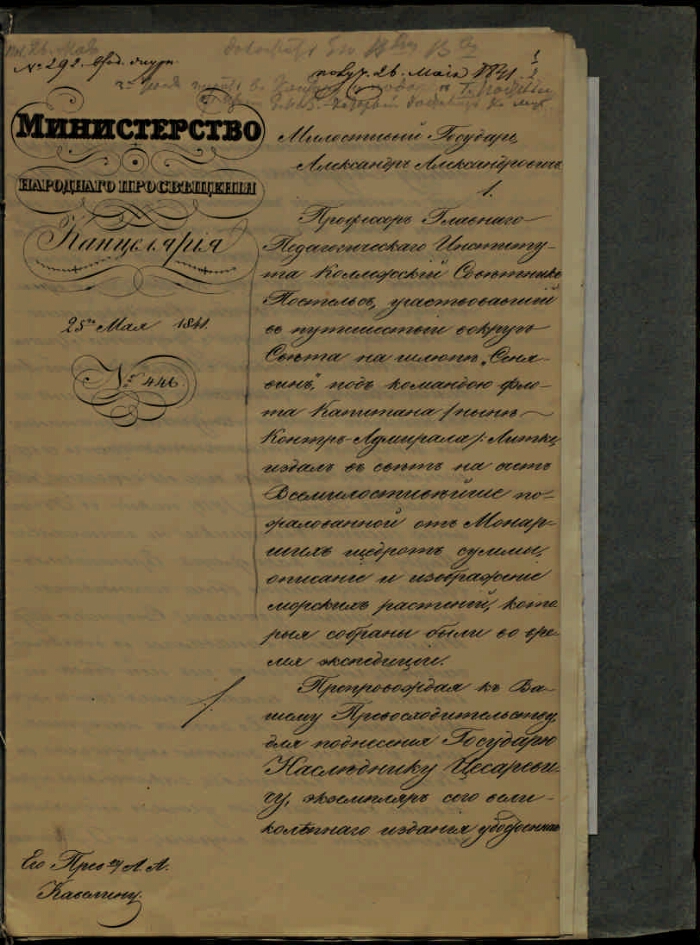 № 292. вход. журн.
получ. 26. Мая 1841.
Министерство
народнаго просвѣщенія
Канцелярія
25го Мая 1841.
№ 446.
Милостивый Государь,
Александръ Александровичъ.
1.
Профессоръ Главнаго
Педагогическаго Институ-
та Коллежскій Совѣтникъ
Постельсъ, участвовавшій
въ путешествіи вокругъ
Свѣта на шлюпѣ „Сеня-
винъ," подъ командою фло-
та Капитана /: нынѣ
Контръ-Адмирала :/ Литке,
издалъ въ свѣтъ на счетъ
Всемилостивѣйше по-
жалованной отъ Монар-
шихъ щедротъ суммы,
описаніе и изображеніе
морскихъ растеній, кото-
рыя собраны были во вре-
мя экспедиціи.
Препровождая къ Ва-
шему Превосходительству,
для поднесенія Государю
Наслѣднику Цесареви-
чу, экземпляръ сего вели-
колѣпнаго изданія удостоеннаго
Его Прев-ву А. А.
Кавелину.